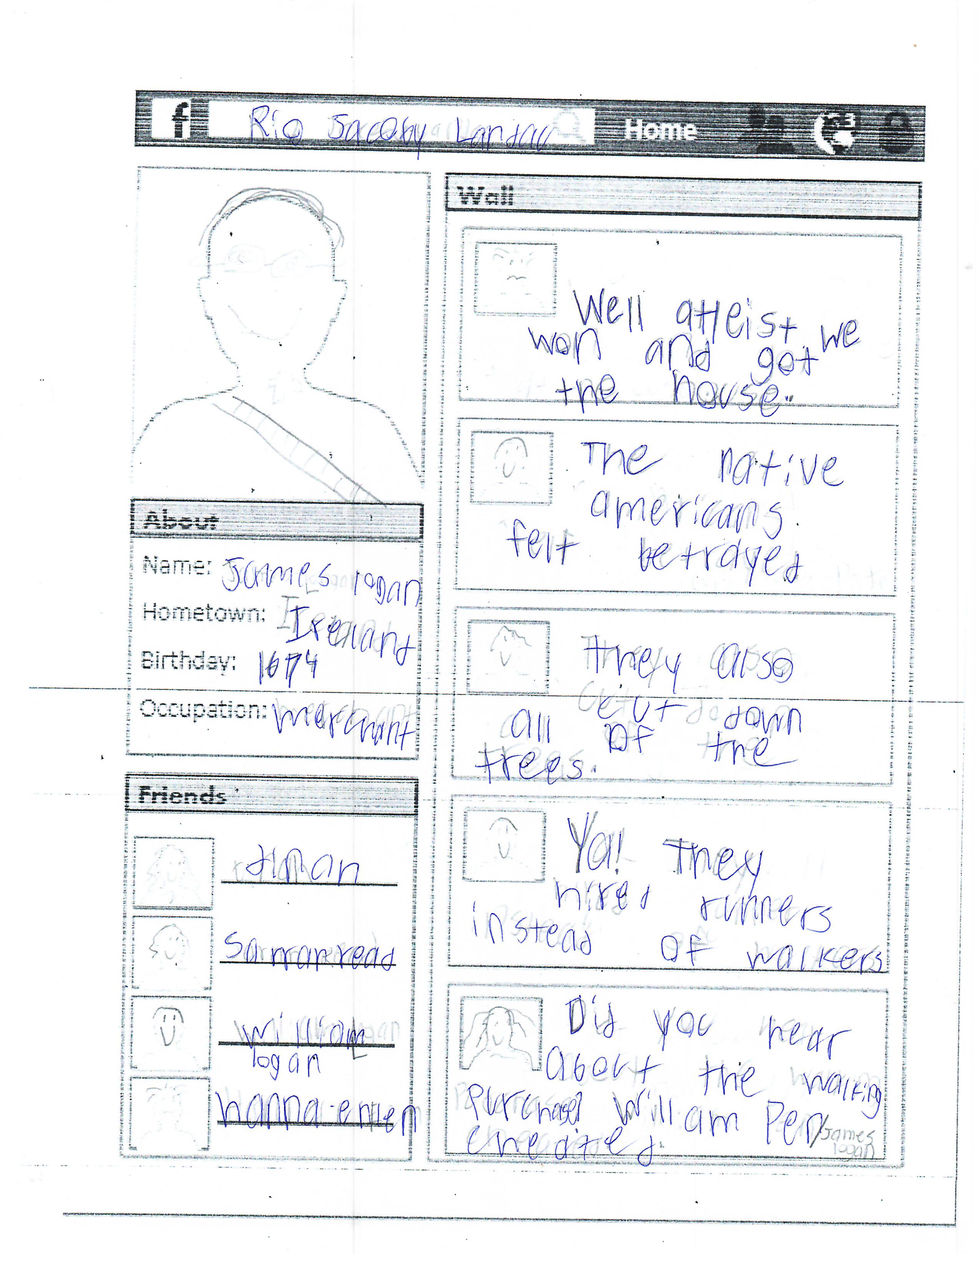 f
Rio Jacoby Lanjau
Home
3
Wall
Well atteist we
won and got
the house.
The native
americans.
felt betrayed
they also
cut down
all of the
trees.
Ya! They
hired runners
instead of walkers
Did you hear
about the walking
Purchase? William Pen/James
logan
cheated.
About
Name: James logan
Hometown: Ireland
Birthday: 1674
Occupation: merchant
Friends
Sarrahread
William
logan
hanna emlen